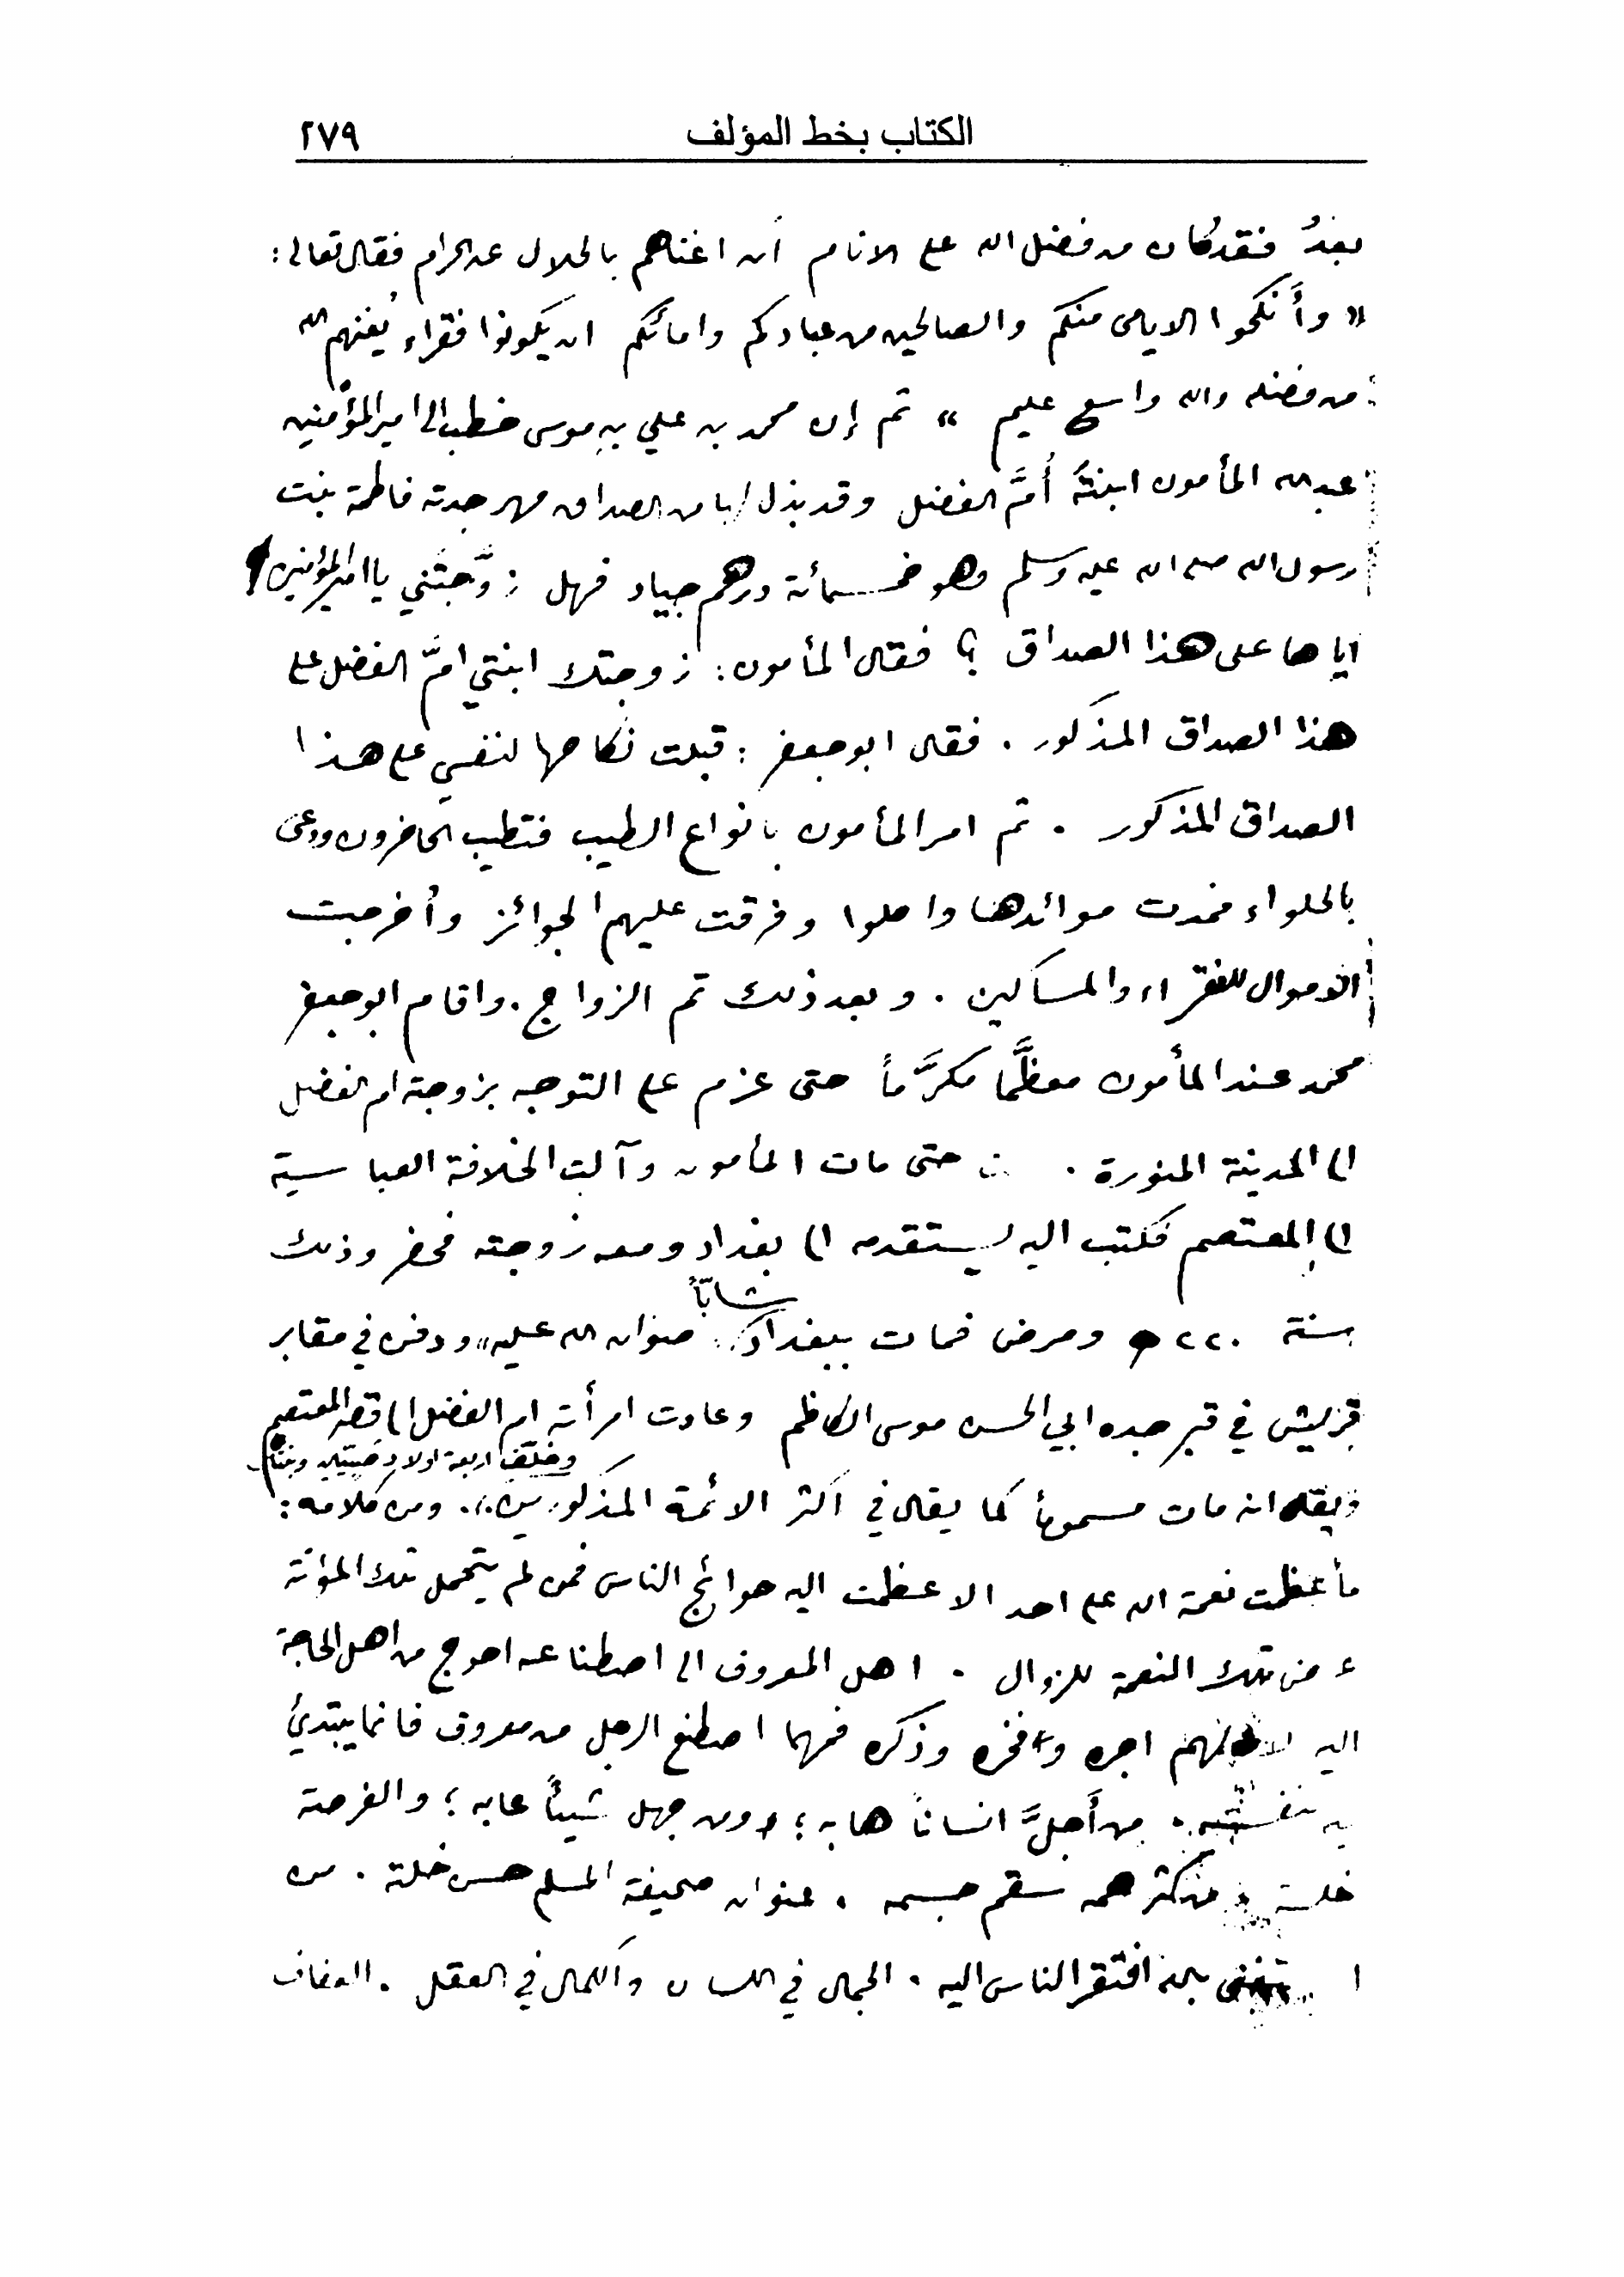 الكتاب بخط المؤلف ٢٧٩
بعدُ فقد كان من فضل الله على الانام أن اغناهم بالحلال عن الحرام فقال تعالى :
« وأَنكحوا الايامى منكم والصالحين من عبادكم وامائكم ان يكونوا فقراء يُغنهم الله
من فضله والله واسع عليم » ثم إن محمد بن علي بن موسى خطب الى امير المؤمنين
عبد الله المأمون ابنتُه أُمَّ الفضل وقد بذل لها من الصداق مهر جدته فاطمة بنت
رسول الله صلى الله عليه وسلم وهو خمسمائة درهم جياد فهل زوَّجتَني يا امير المؤمنين
اياها على هذا الصداق ؟ فقال المأمون : زوجتك ابنتي امَّ الفضل على
هذا الصداق المذكور . فقال ابو جعفر : قبلت نكاحها لنفسي على هذا
الصداق المذكور . ثم امر المأمون بانواع الطيب فتطيب الحاضرون ودعى
بالحلواء فمدت موائدها واكلوا وفرقت عليهم الجوائز وأخرجت
الاموال للفقراء والمساكين . وبعد ذلك تم الزواج . واقام ابو جعفر
محمد عند المأمون معظَّما مكرَّماً حتى عزم على التوجه بزوجته ام الفضل
الى المدينة المنورة . حتى مات المأمون وآلت الخلافة العباسية
الى المعتصم فكتب اليه ليستقدمه الى بغداد ومعه زوجته فحضر وذلك
شابّاً
سنة ٢٢٠ ه ومرض فمات ببغداد رضوان الله عليه ودفن في مقابر
قريش في قبر جده ابي الحسن موسى الكاظم وعادت امرأته ام الفضل الى قصر المعتصم
وخلّف اربعة اولاد صبيّين وبنتان
ويقال انه مات مسموماً كما يقال في اكثر الائمة المذكورين . ومن كلامه :
ما عظمت نعمة الله على احد الا عظمت اليه حوائج الناس فمن لم يتحمل تلك المؤنة
عرض تلك النعمة للزوال . اهل المعروف الى اصطناعه احوج من اهل الحاجة
اليه لان لهم اجره وفخره وذكره فمهما اصطنع الرجل من معروف فانما يبتدئ
به بنفسه . من أَجلَّ انساناً هابه ؛ ومن جهل شيئاً عابه ؛ والفرصة
خلسة . من كثر همه سقم جسمه . عنوان صحيفة المسلم حسن خلقه . من
استغنى بالله افتقر الناس اليه . الجمال في اللسان والكمال في العقل . العفاف